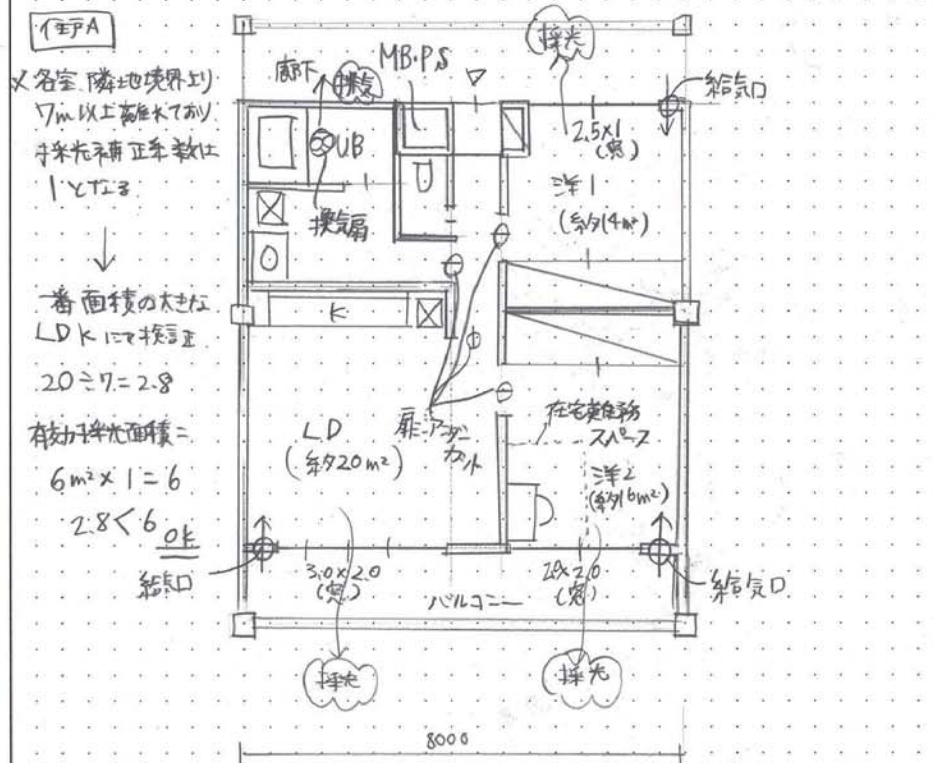 住戸A
※各室、隣地境界より
7m以上離れており
採光補正係数は
1となる
↓
一番面積の大きな
LDKにて検証
20÷7=2.8
有効採光面積=
6m²×1=6
2.8<6 OK
廊下
換気
MB.PS
採光
給気口
UB
換気扇
2.5×1
(窓)
洋1
(約14m²)
K
LD
(約20m²)
扉アンダー
カット
在宅勤務
スペース
洋2
(約16m²)
給気口
3.0×2.0
(窓)
2.0
(窓)
バルコニー
給気口
採光
採光
8000